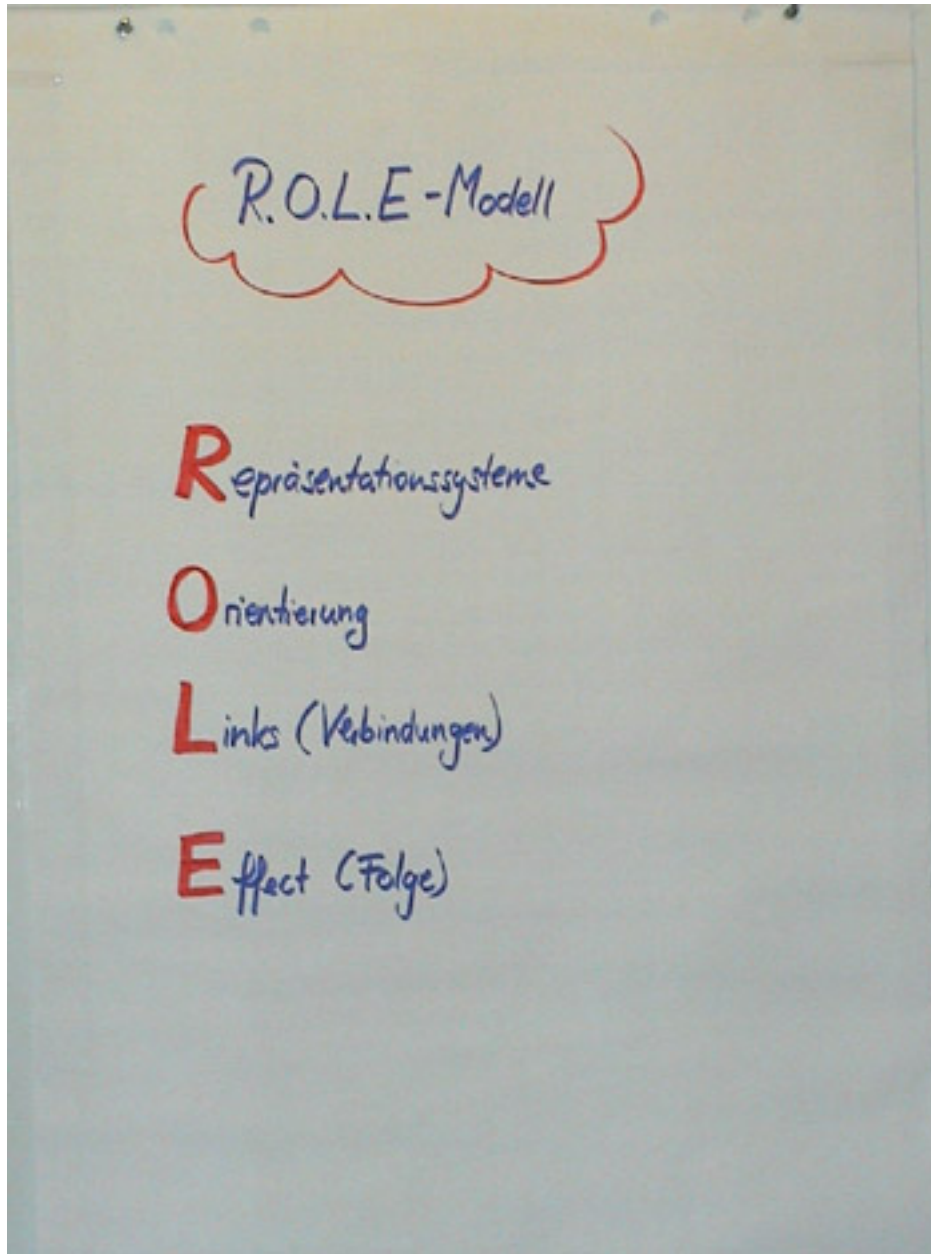 R.O.L.E-Modell
Repräsentationssysteme
Orientierung
Links (Verbindungen)
Effect (Folge)